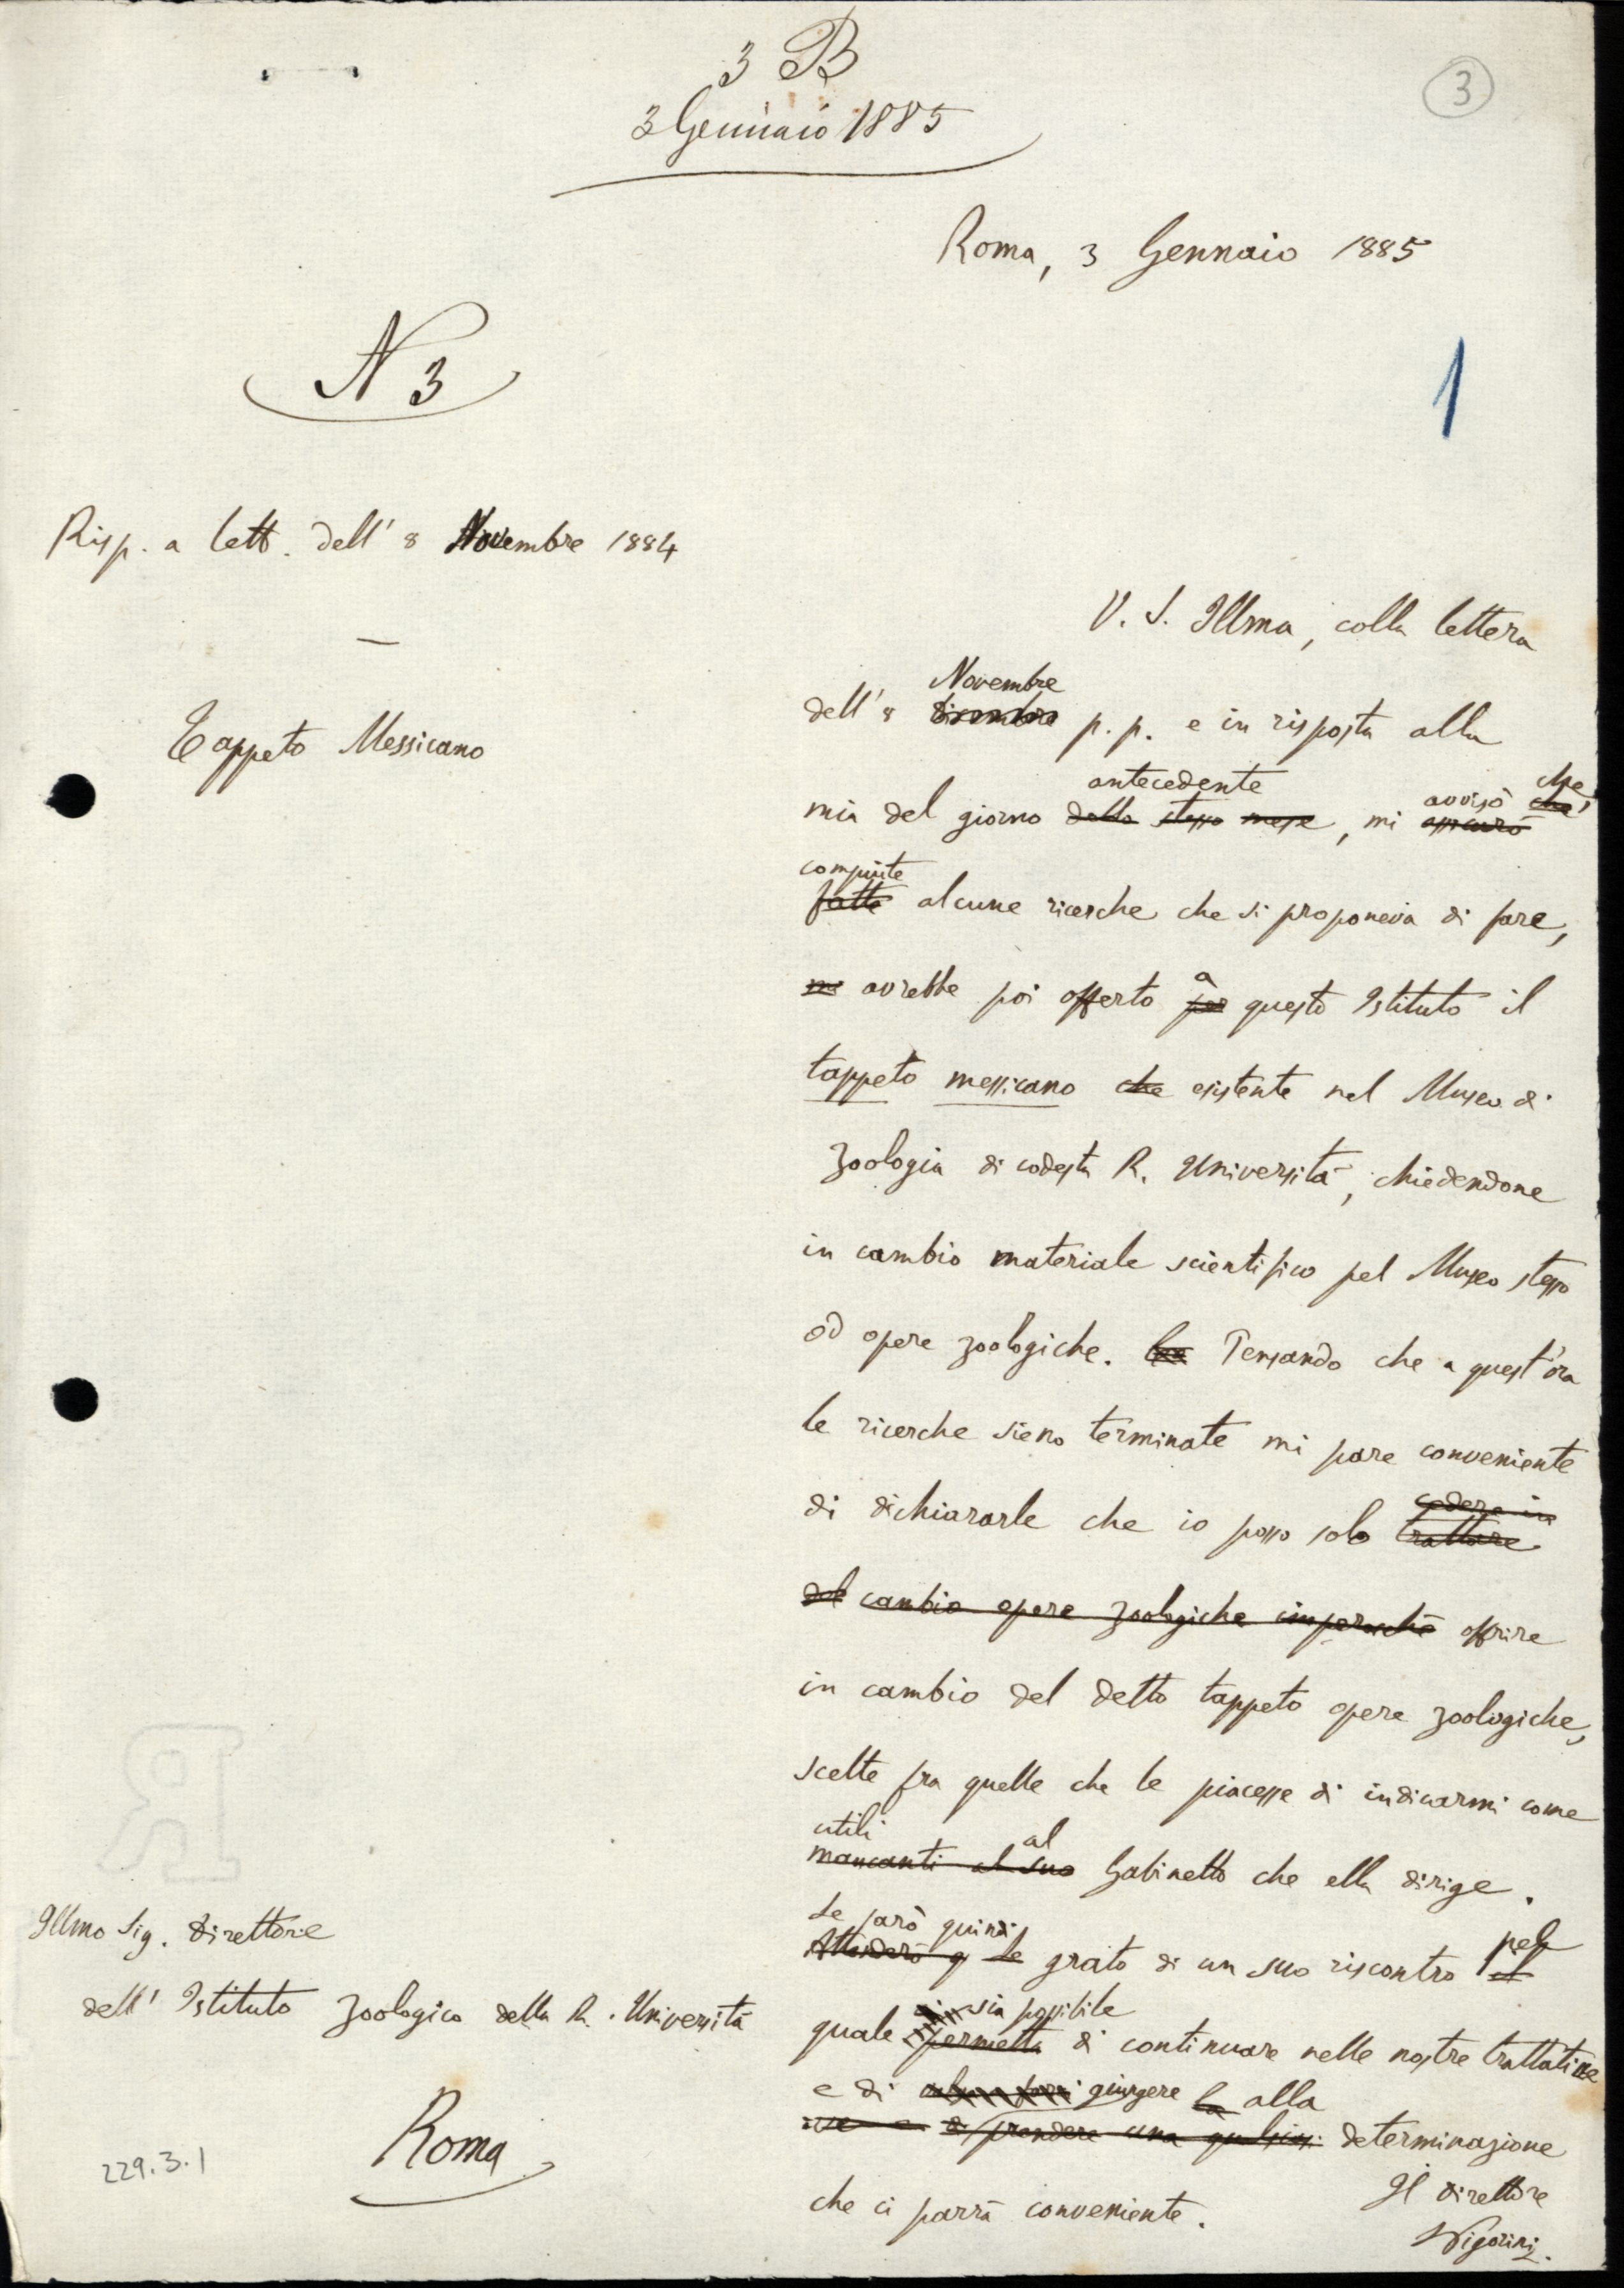 3 B
3 Gennaio 1885
3
Roma, 3 Gennaio 1885
N 3
1
Risp. a lett. dell' 8 Novembre 1884
—
Tappeto Messicano
V. S. Illma, colla lettera
Novembre
dell' 8 dicembre p. p. e in risposta alla
antecedente avvisò che,
mia del giorno dello stesso mese, mi assicurò che
compiute
fatte alcune ricerche che si proponeva di fare,
a
me avrebbe poi offerto per questo Istituto il
tappeto messicano che esistente nel Museo di
Zoologia di codesta R. Università, chiedendone
in cambio materiale scientifico pel Museo stesso
od opere zoologiche. Pensando che a quest'ora
le ricerche sieno terminate mi pare conveniente
cedere in
di dichiararle che io posso solo trattare
del cambio opere zoologiche imperocchè offrire
in cambio del detto tappeto opere zoologiche,
scelte fra quelle che le piacesse di indicarmi come
utili al
mancanti al suo Gabinetto che ella dirige.
Le sarò quindi pel
Attenderò q Le grato di un suo riscontro il
sia possibile
quale permetta di continuare nelle nostre trattative
e di giungere la alla
di prendere una qualsiasi determinazione
che ci parrà conveniente.
Il direttore
Pigorini
Illmo Sig. Direttore
dell' Istituto Zoologico della R. Università
Roma
229.3.1
R